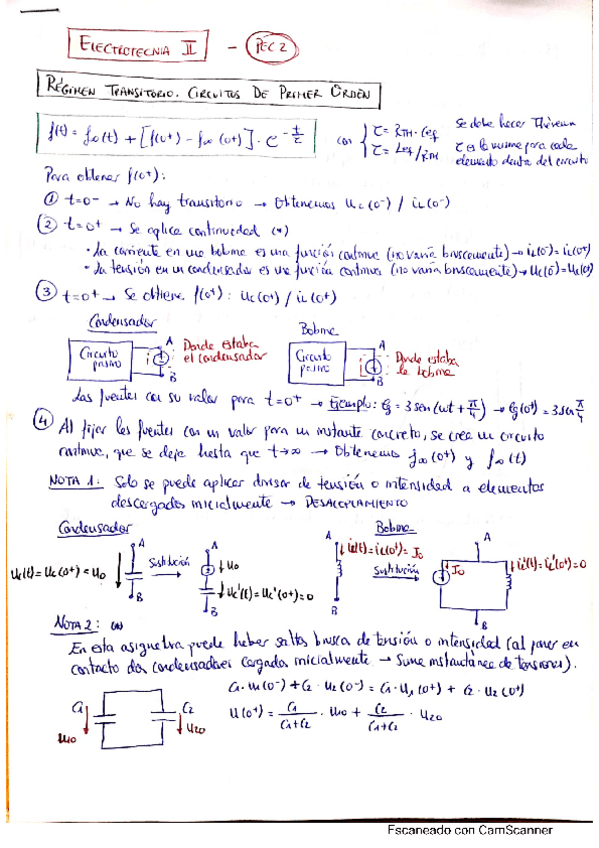 ELECTROTECNIA II - PEC 2
RÉGIMEN TRANSITORIO. CIRCUITOS DE PRIMER ORDEN
f(t) = f∞(t) + [f(0+) - f∞(0+)] · e^(-t/τ) con { τ = RTH · Ceq
τ = Leq/RTH
Se debe hacer Thévenin
τ es la misma para cada
elemento dentro del circuito
Para obtener f(0+):
① t=0- → No hay transitorio → Obtenemos uc(0-) / iL(0-)
② t=0+ → Se aplica continuidad (*)
· La corriente en una bobina es una función continua (no varía bruscamente) → iL(0-) = iL(0+)
· La tensión en un condensador es una función continua (no varía bruscamente) → uc(0-) = uc(0+)
③ t=0+ → Se obtiene f(0+): uc(0+) / iL(0+)
Condensador
Bobina
Circuito
pasivo
A
B
i
Donde estaba
el condensador
Circuito
pasivo
A
B
i
Donde estaba
la bobina
Las fuentes con su valor para t=0+ → Ejemplo: eg = 3 sen(ωt + π/4) → eg(0+) = 3 sen π/4
④ Al fijar las fuentes con un valor para un instante concreto, se crea un circuito
continuo, que se deja hasta que t→∞ → Obtenemos f∞(0+) y f∞(t)
NOTA 1: Solo se puede aplicar divisor de tensión o intensidad a elementos
descargados inicialmente → DESACOPLAMIENTO
Condensador
Bobina
uc(t) = uc(0+) = u0
A
B
Sustitución
A
u0
uc'(t) = uc'(0+) = 0
B
A
iL(t) = iL(0+) = J0
B
Sustitución
A
J0
iL'(t) = iL'(0+) = 0
B
NOTA 2: (*)
En esta asignatura puede haber saltos bruscos de tensión o intensidad (al poner en
contacto dos condensadores cargados inicialmente → Suma instantánea de tensiones).
C1
u10
C2
u20
C1 · u1(0-) + C2 · u2(0-) = C1 · u1(0+) + C2 · u2(0+)
u(0+) = C1/(C1+C2) · u10 + C2/(C1+C2) · u20
Escaneado con CamScanner